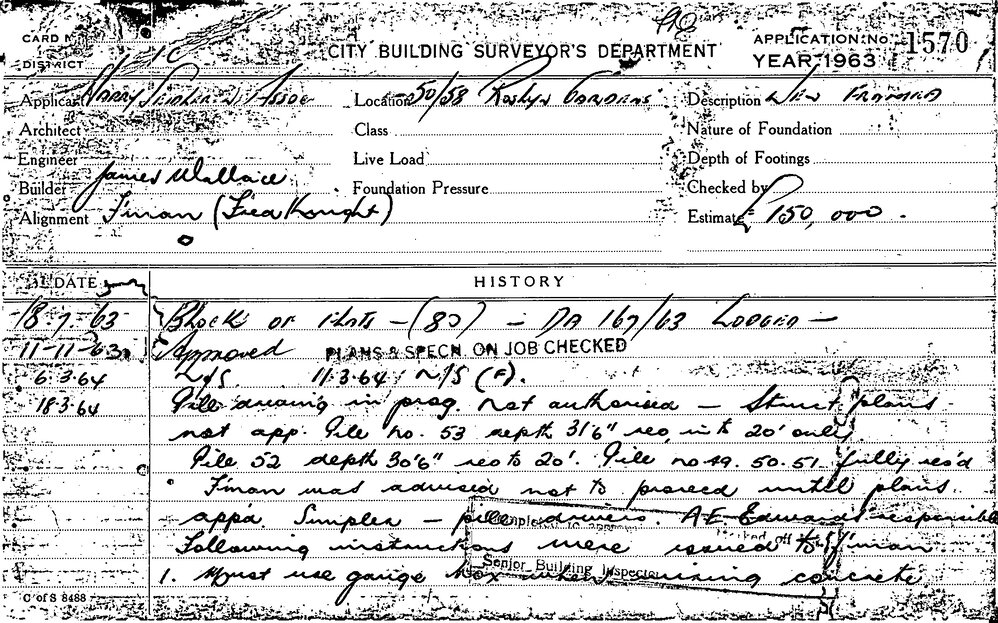 CARD N
CITY BUILDING SURVEYOR'S DEPARTMENT
APPLICATION No. 1570
DISTRICT
YEAR 1963
Applicant Harry Seidler & Assoc Location 50/58 Roslyn Gardens Description New Framed
Architect Class Nature of Foundation
Engineer Live Load Depth of Footings
Builder James Wallace Foundation Pressure Checked by
Alignment F'man (Fred Knight) Estimate £ 150,000.
DATE HISTORY
18.7.63 Block of Flats - (80) - DA 167/63 Lodged -
11-11-63 Approved PLANS & SPECN. ON JOB CHECKED
6.3.64 N/S. 11.3.64 N/S (F).
18.3.64 Pile driving in prog. not authorised - Struct plans
not app. Pile no. 53 depth 31'6" reo, in to 20' only
Pile 52 depth 30'6" reo to 20'. Pile no 49. 50. 51 fully reo'd
F'man was advised not to proceed until plans
appd. Simplex - pile drivers. A E Edwards responsible
Following instructions were issued to F'man
Senior Building Inspector
1. Must use gauge box when mixing concrete
C of S 8488